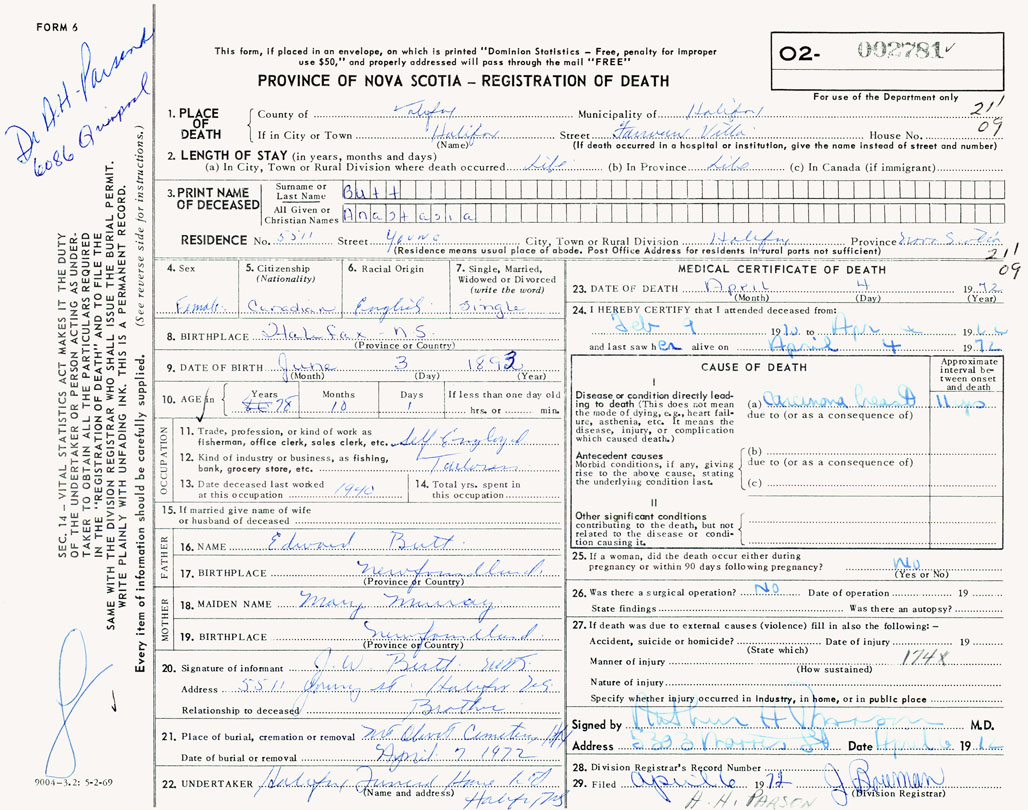 FORM 6
Dr A.H. Parsons
6086 Quinpool
This form, if placed in an envelope, on which is printed "Dominion Statistics – Free, penalty for improper
use $50," and properly addressed will pass through the mail "FREE"
PROVINCE OF NOVA SCOTIA – REGISTRATION OF DEATH
02- 002781
For use of the Department only
21 1
09
SEC. 14 – VITAL STATISTICS ACT MAKES IT THE DUTY
OF THE UNDERTAKER OR PERSON ACTING AS UNDER-
TAKER TO OBTAIN ALL THE PARTICULARS REQUIRED
IN THE "REGISTRATION OF DEATH" AND FILE THE
SAME WITH THE DIVISION REGISTRAR WHO SHALL ISSUE THE BURIAL PERMIT.
WRITE PLAINLY WITH UNFADING INK. THIS IS A PERMANENT RECORD.
Every item of information should be carefully supplied. (See reverse side for instructions.)
1. PLACE OF DEATH
County of Halifax Municipality of Halifax
If in City or Town Halifax Street Fairview Villa House No.
(Name) (If death occurred in a hospital or institution, give the name instead of street and number)
2. LENGTH OF STAY (in years, months and days)
(a) In City, Town or Rural Division where death occurred Life (b) In Province Life (c) In Canada (if immigrant)
3. PRINT NAME OF DECEASED
Surname or Last Name Butt
All Given or Christian Names Anastasia
RESIDENCE No. 5511 Street Young City, Town or Rural Division Halifax Province Nova Scotia
(Residence means usual place of abode. Post Office Address for residents in rural parts not sufficient)
21 1
09
4. Sex Female
5. Citizenship (Nationality) Canadian
6. Racial Origin English
7. Single, Married, Widowed or Divorced (write the word) Single
8. BIRTHPLACE Halifax N.S.
(Province or Country)
9. DATE OF BIRTH June 3 1893
(Month) (Day) (Year)
10. AGE in Years 78 Months 10 Days 1 If less than one day old hrs. or min.
OCCUPATION
11. Trade, profession, or kind of work as
fisherman, office clerk, sales clerk, etc. Self Employed
12. Kind of industry or business, as fishing,
bank, grocery store, etc.
13. Date deceased last worked
at this occupation 1940
14. Total yrs. spent in
this occupation
15. If married give name of wife
or husband of deceased
FATHER
16. NAME Edward Butt
17. BIRTHPLACE Newfoundland
(Province or Country)
MOTHER
18. MAIDEN NAME Mary Murray
19. BIRTHPLACE Newfoundland
(Province or Country)
20. Signature of informant J.W. Butt
Address 5511 Young St. Halifax N.S.
Relationship to deceased Brother
21. Place of burial, cremation or removal Mt. Olivet Cemetery Hfx
Date of burial or removal April 7 1972
22. UNDERTAKER Halifax Funeral Home Ltd
(Name and address) Halifax NS
9004-3.2: 5-2-69
MEDICAL CERTIFICATE OF DEATH
23. DATE OF DEATH April 4 1972
(Month) (Day) (Year)
24. I HEREBY CERTIFY that I attended deceased from:
Feb 1 19 to Apr 19
and last saw her alive on April 4 1972
CAUSE OF DEATH
Approximate interval between onset and death
I
Disease or condition directly leading to death (This does not mean the mode of dying, e.g., heart failure, asthenia, etc. It means the disease, injury, or complication which caused death.)
(a) Carcinoma breast 11 yrs
due to (or as a consequence of)
Antecedent causes
Morbid conditions, if any, giving rise to the above cause, stating the underlying condition last.
(b)
due to (or as a consequence of)
(c)
II
Other significant conditions
contributing to the death, but not related to the disease or condition causing it.
25. If a woman, did the death occur either during
pregnancy or within 90 days following pregnancy? No
(Yes or No)
26. Was there a surgical operation? No Date of operation 19
State findings Was there an autopsy?
27. If death was due to external causes (violence) fill in also the following: –
Accident, suicide or homicide? Date of injury 19
(State which)
Manner of injury 174X
(How sustained)
Nature of injury
Specify whether injury occurred in industry, in home, or in public place
Signed by Arthur H Parsons M.D.
Address St Date April 19
28. Division Registrar's Record Number
29. Filed April 6 1972 J Bauman
(Division Registrar)
A. H. PARSON